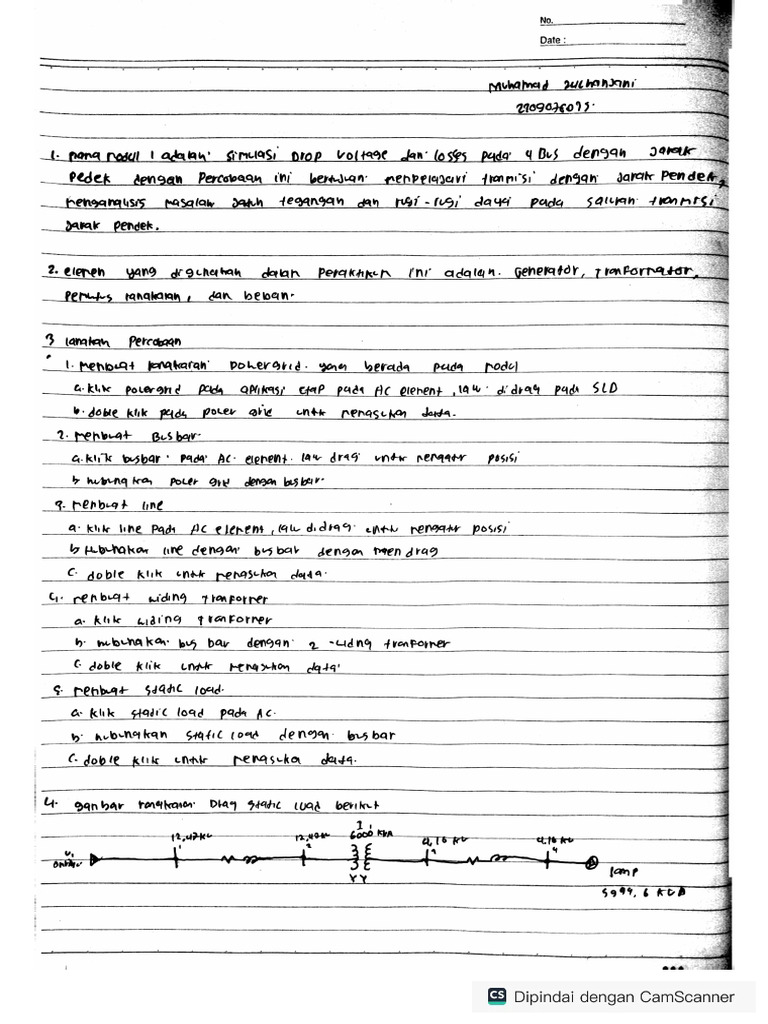 No.
Date :
Muhamad zulhanjani
2209076075.
1. nama modul 1 adalah simulasi Drop voltage dan losses pada 4 Bus dengan Jarak
Pedek dengan Percobaan ini bertujuan mempelajari tranmisi dengan Jarak Pendek,
menganalisis masalah jatuh tegangan dan rugi-rugi daya pada saluran tranmisi
Jarak Pendek.
2. elemen yang digunakan dalam Peraktikum ini adalah. Generator, Tranformator,
Pemutus rangkaian, dan beban.
3 langkah Percobaan
1. membuat rangkaian Powergrid yang berada pada modul
a. klik powergrid pada aplikasi etap pada AC element, lalu didrag pada SLD
b. doble klik pada power grid untuk memasukan data.
2. membuat Busbar.
a. klik busbar pada AC element. lalu drag untuk mengatur posisi
b hubungkan power grid dengan busbar.
3. membuat line
a. klik line pada AC element, lalu didrag untuk mengatur posisi
b Hubunakan line dengan busbar dengan men drag
c. doble klik untuk memasukan data.
4. membuat widing Tranformer
a. klik widing tranformer
b. hubunakan bus bar dengan 2 -widng tranformer
c. doble klik untuk memasukan data.
5. membuat static load.
a. klik static load pada AC.
b. hubunakan static load dengan busbar
c. doble klik untuk memasukan data.
4. gambar rangkaian Drag static load berikut
12,47kV
1
2
6000 kVA
4,16 kV
4,16 kV
4
YY
lamp
5999,6 kVA
CS Dipindai dengan CamScanner